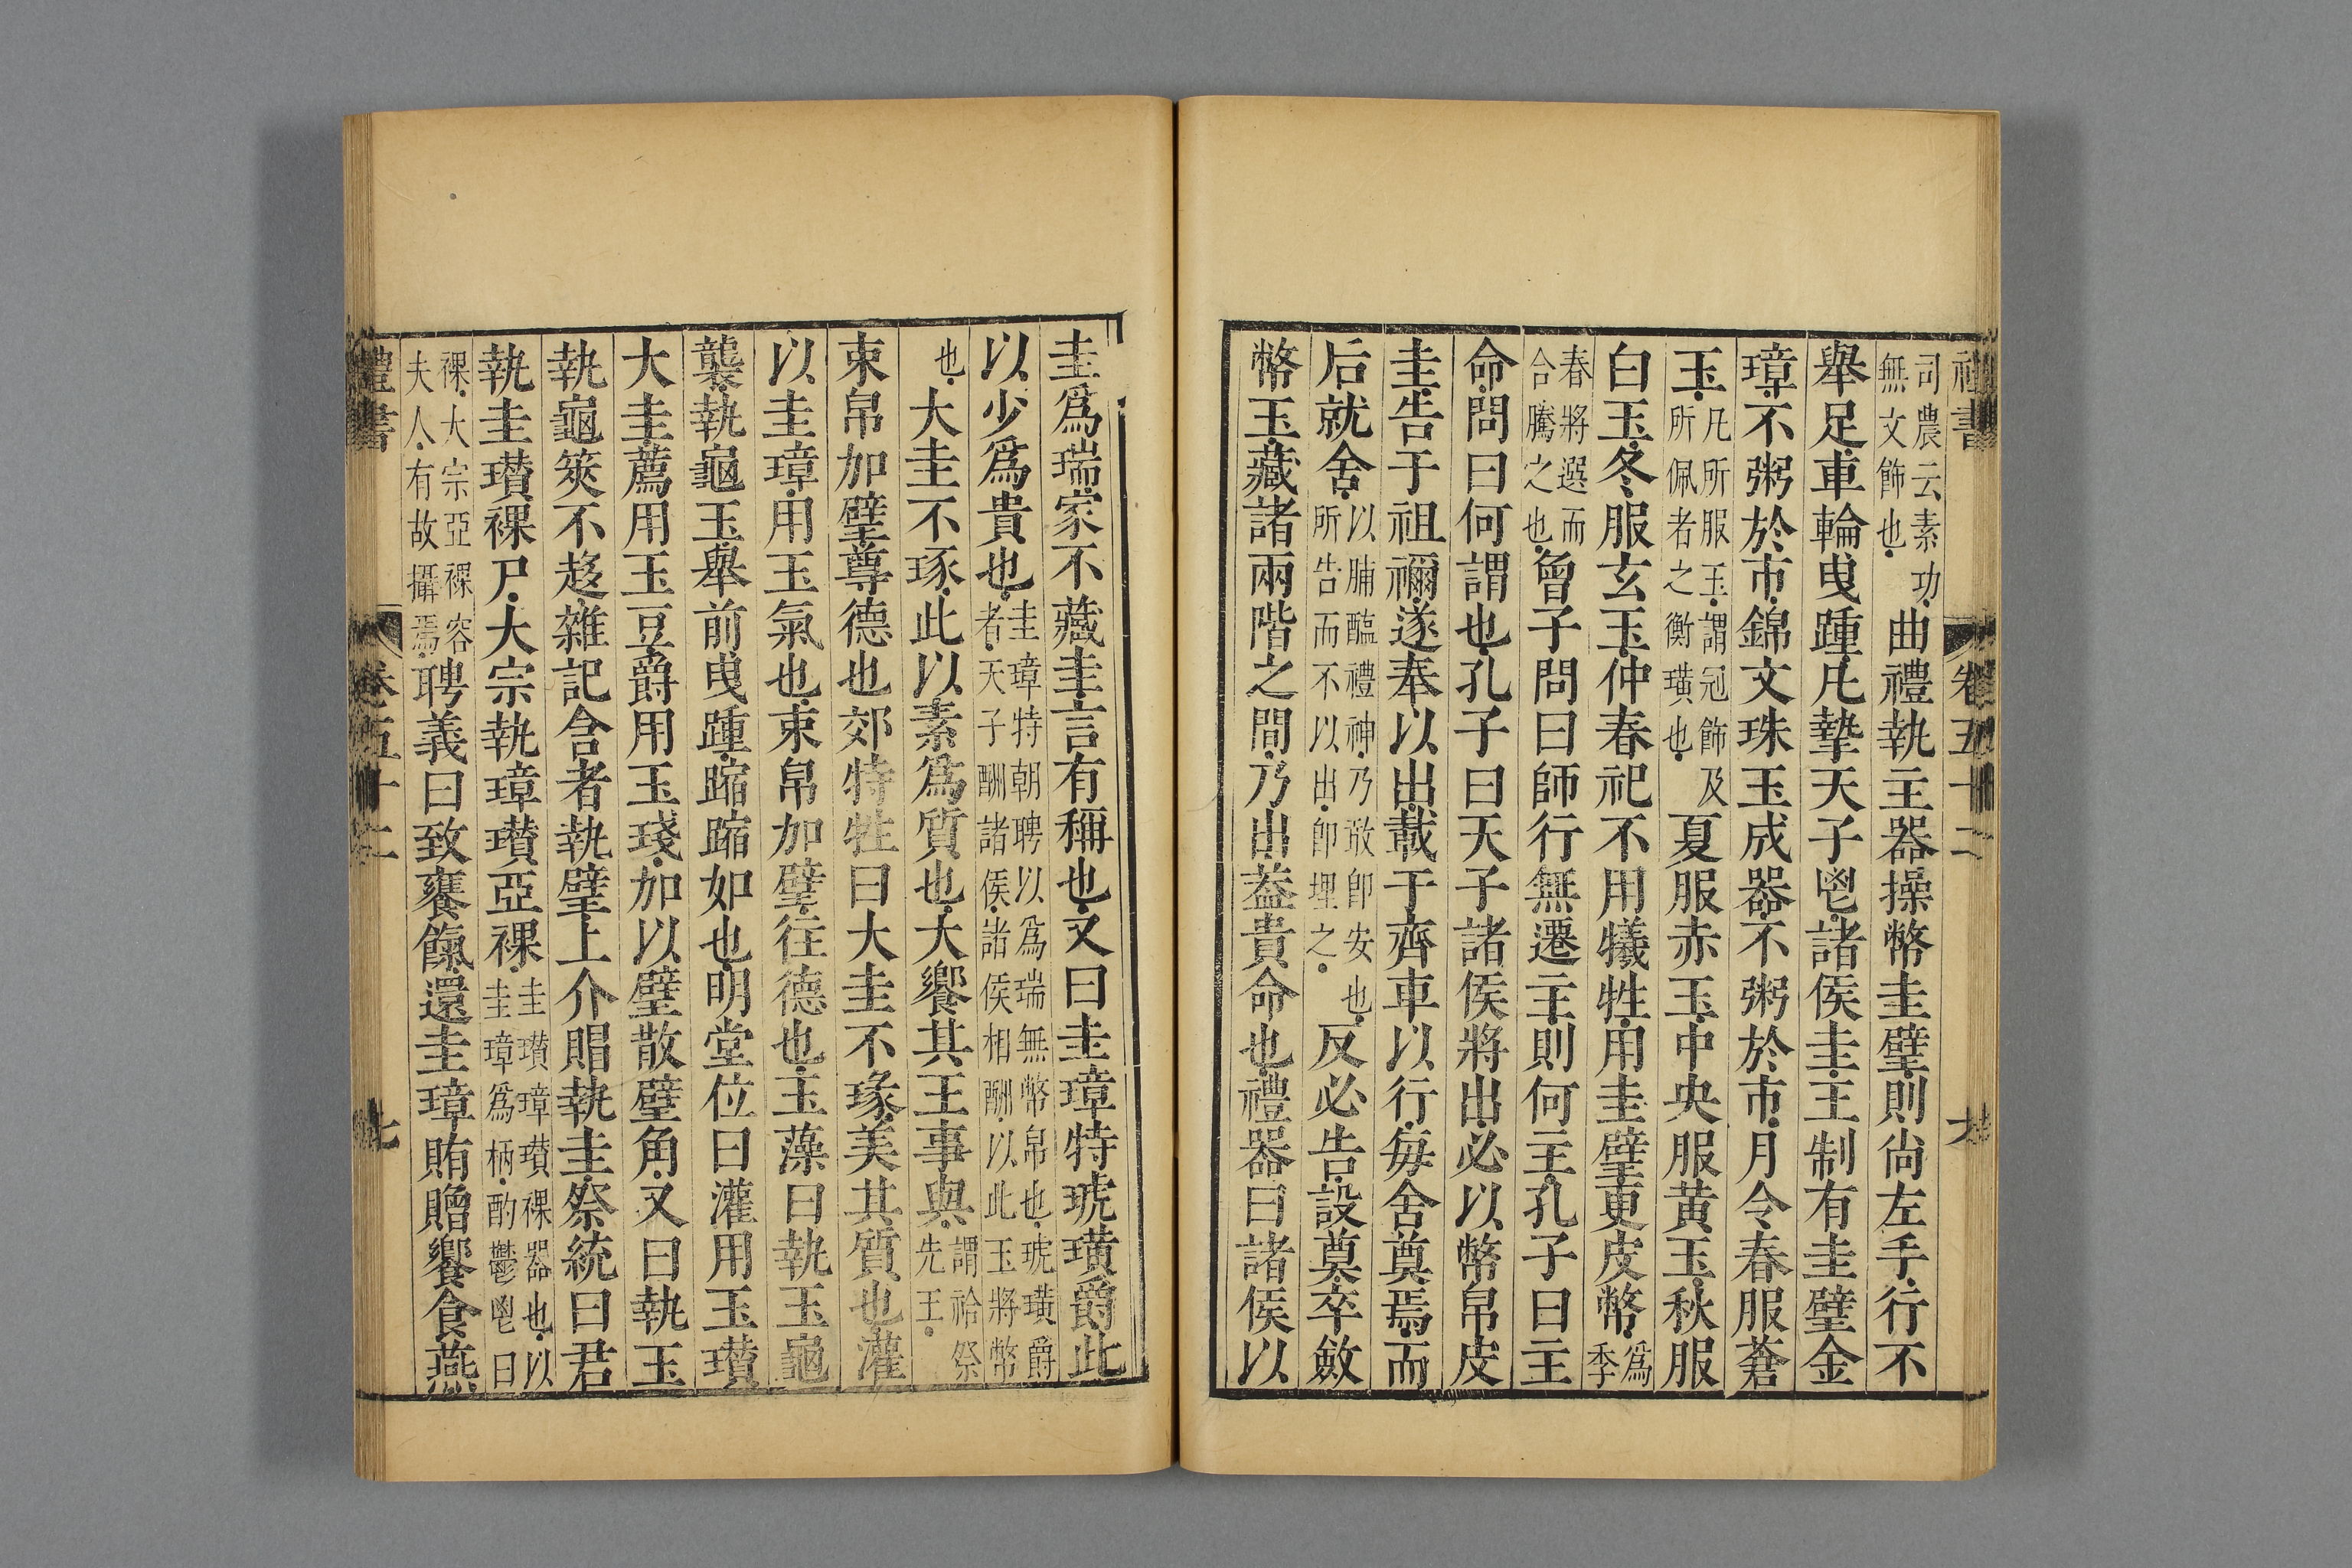 禮書
卷五十二
司農云素功無文飾也曲禮執主器操幣圭璧則尚左手行不
舉足車輪曳踵凡摯天子鬯諸侯圭王制有圭璧金
璋不粥於市錦文珠玉成器不粥於市月令春服蒼
玉凡所服玉謂冠飾及所佩者之衡璜也夏服赤玉中央服黃玉秋服
白玉冬服玄玉仲春祀不用犧牲用圭璧更皮幣爲季
春將選而合騰之也曾子問曰師行無遷主則何主孔子曰主
命問曰何謂也孔子曰天子諸侯將出必以幣帛皮
圭告于祖禰遂奉以出載于齊車以行每舍奠焉而
后就舍以脯醢禮神乃敢卽安也所告而不以出卽埋之反必告設奠卒斂
幣玉藏諸兩階之間乃出葢貴命也禮器曰諸侯以
圭爲瑞家不藏圭言有稱也又曰圭璋特琥璜爵此
以少爲貴也圭璋特朝聘以爲瑞無幣帛也琥璜爵者天子酬諸侯諸侯相酬以此玉將幣
也大圭不琢此以素爲質也大饗其王事與謂祫祭先王
束帛加璧尊德也郊特牲曰大圭不瑑美其質也灌
以圭璋用玉氣也束帛加璧往德也玉藻曰執玉龜
襲執龜玉舉前曳踵蹜蹜如也明堂位曰灌用玉瓚
大圭薦用玉豆爵用玉琖加以璧散璧角又曰執玉
執龜筴不趍雜記含者執璧上介賵執圭祭統曰君
執圭瓚祼尸大宗執璋瓚亞祼圭瓚璋瓚祼器也以圭璋爲柄酌鬱鬯曰
祼大宗亞祼容夫人有故攝焉聘義曰致饔餼還圭璋賄贈饗食燕
禮書
卷五十二
七